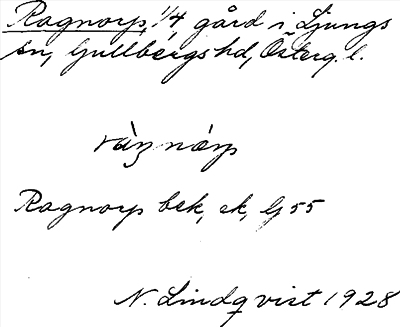 Ragnorp, 1/4, gård i Ljungs
sn, Gullbergs hd, Österg. l.
Ragnorp bek, ek, G 55
N. Lindqvist 1928